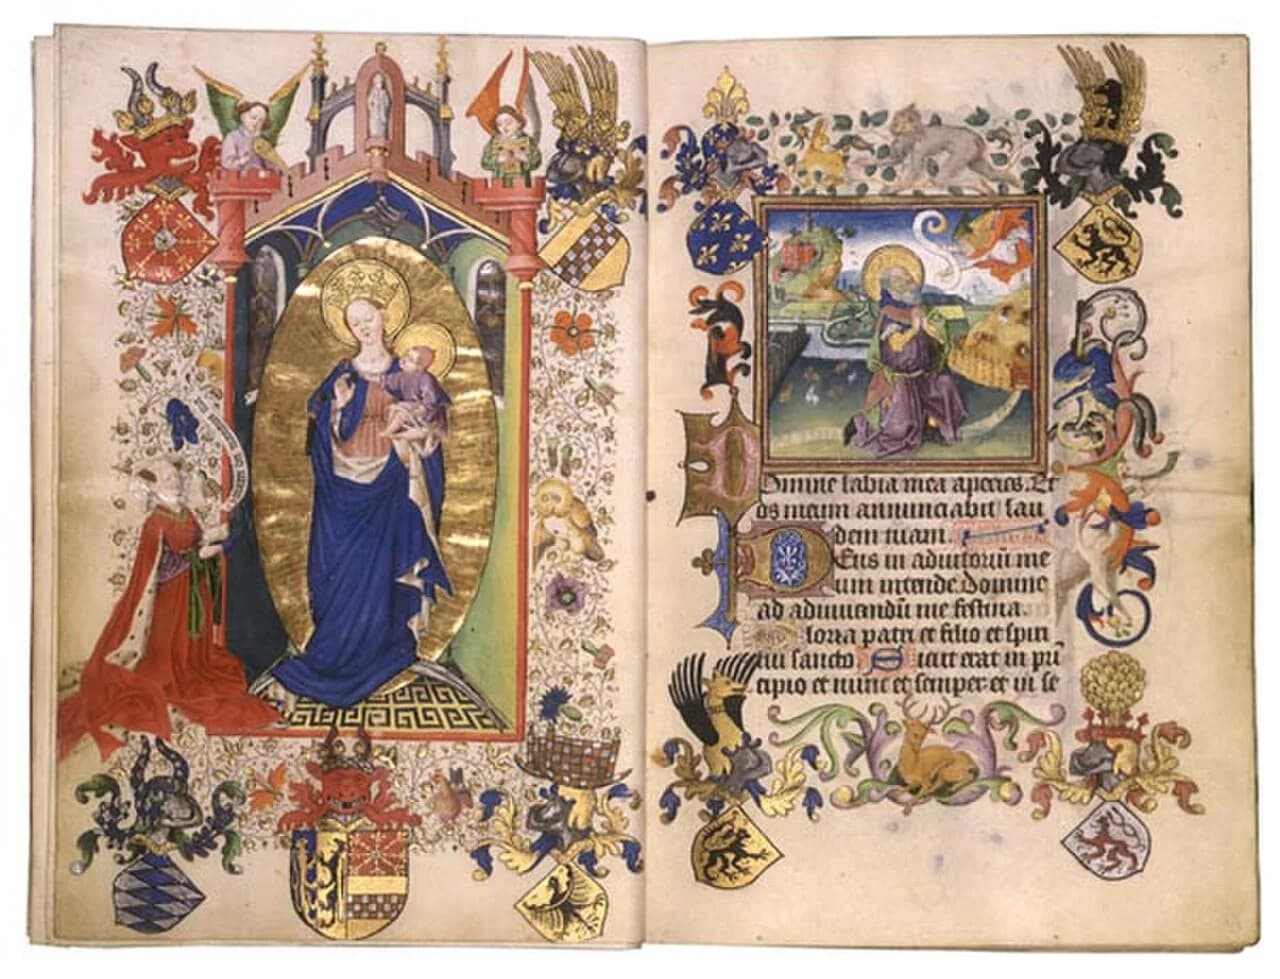 Domine labia mea aperies. Et
os meum annunciabit lau
dem tuam.
Deus in adiutoriũ me
um intende. Domine
ad adiuuendũ me festina.
Gloria patri et filio et spiri
tui sancto Sicut erat in pri
cipio et nunc et semper et in se